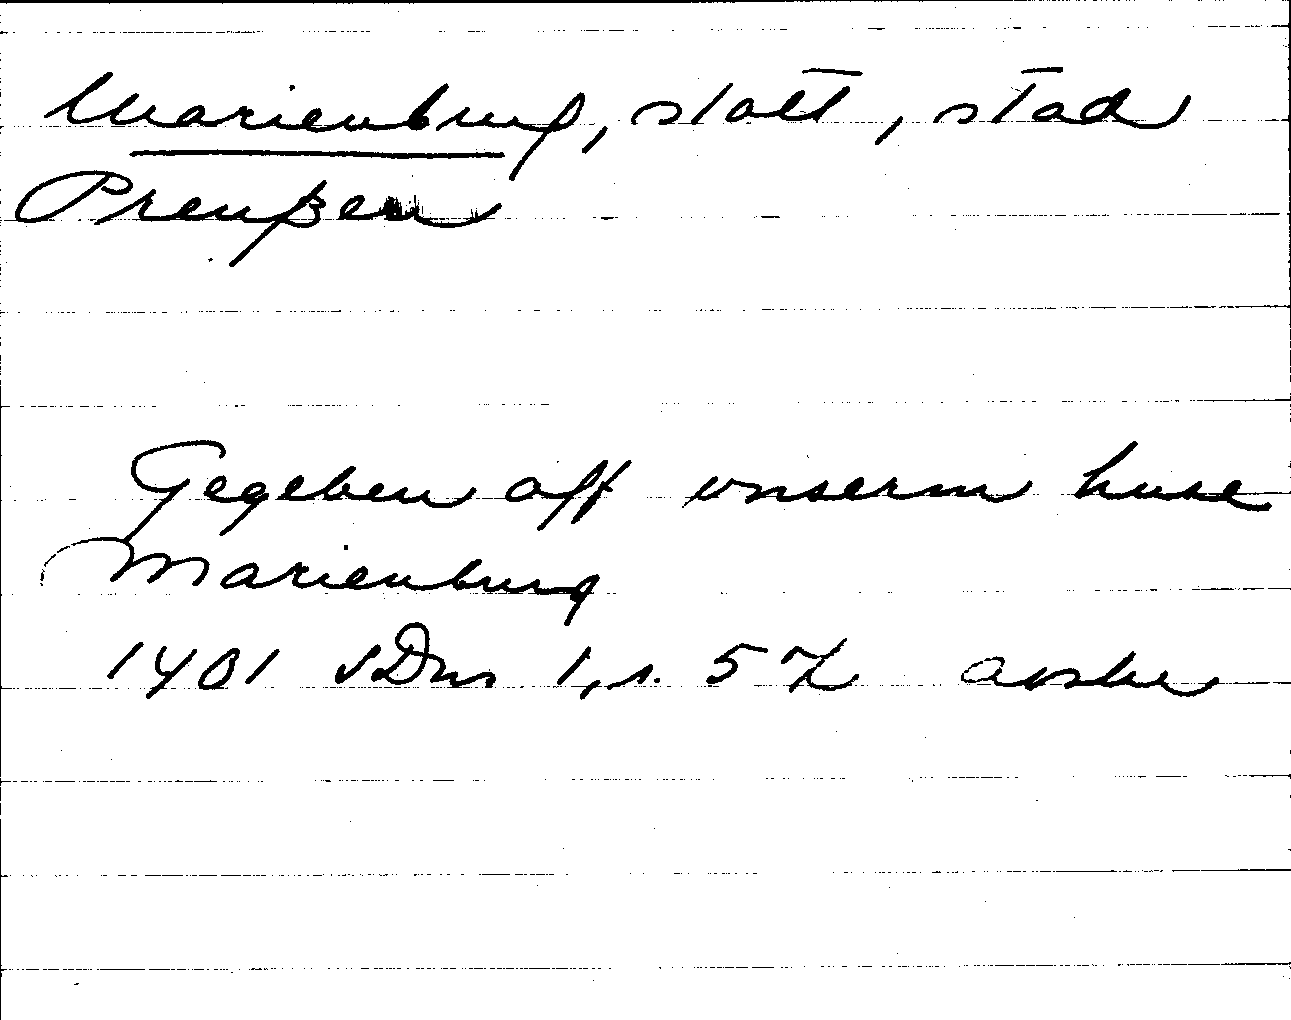 Marienburg, statt, stad
Preußen
Gegeben off vnserm huse
Marienburg
1401 SDns 1, s. 57